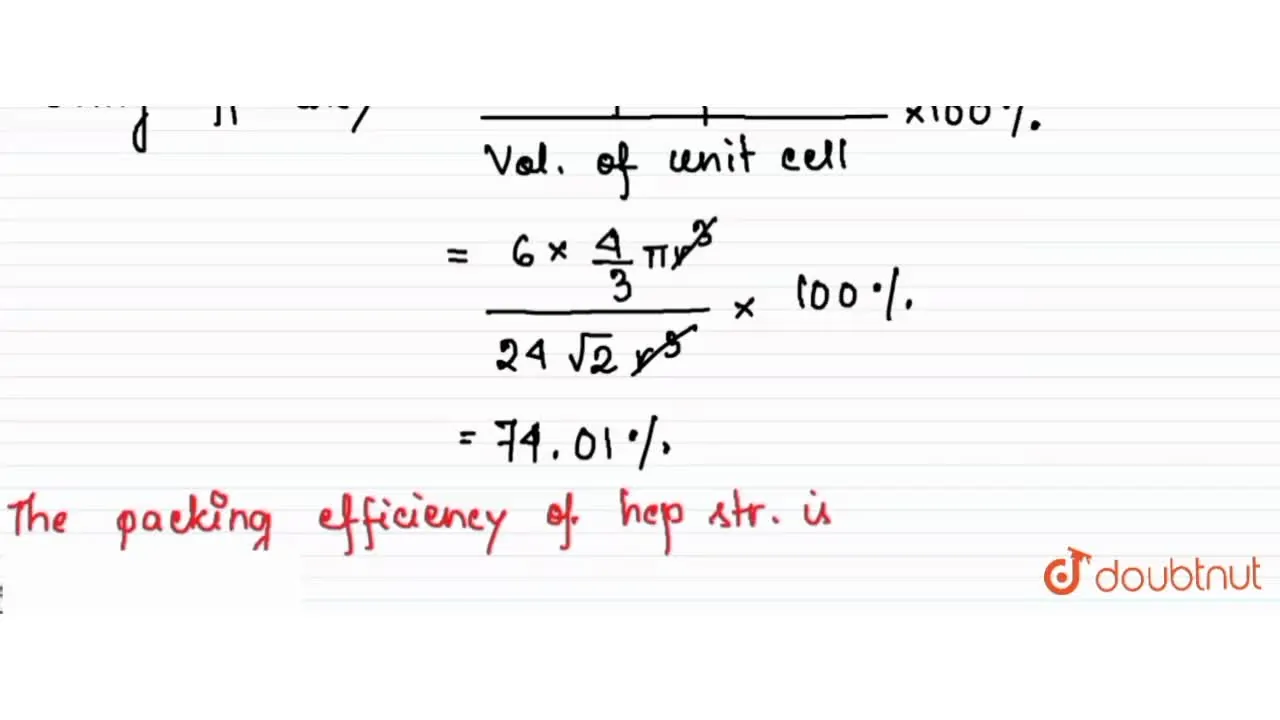 ×100%.
Vol. of unit cell
= 6 × 4/3 πr³
24 √2 r³ × 100%.
= 74.01%.
The packing efficiency of hcp str. is
doubtnut